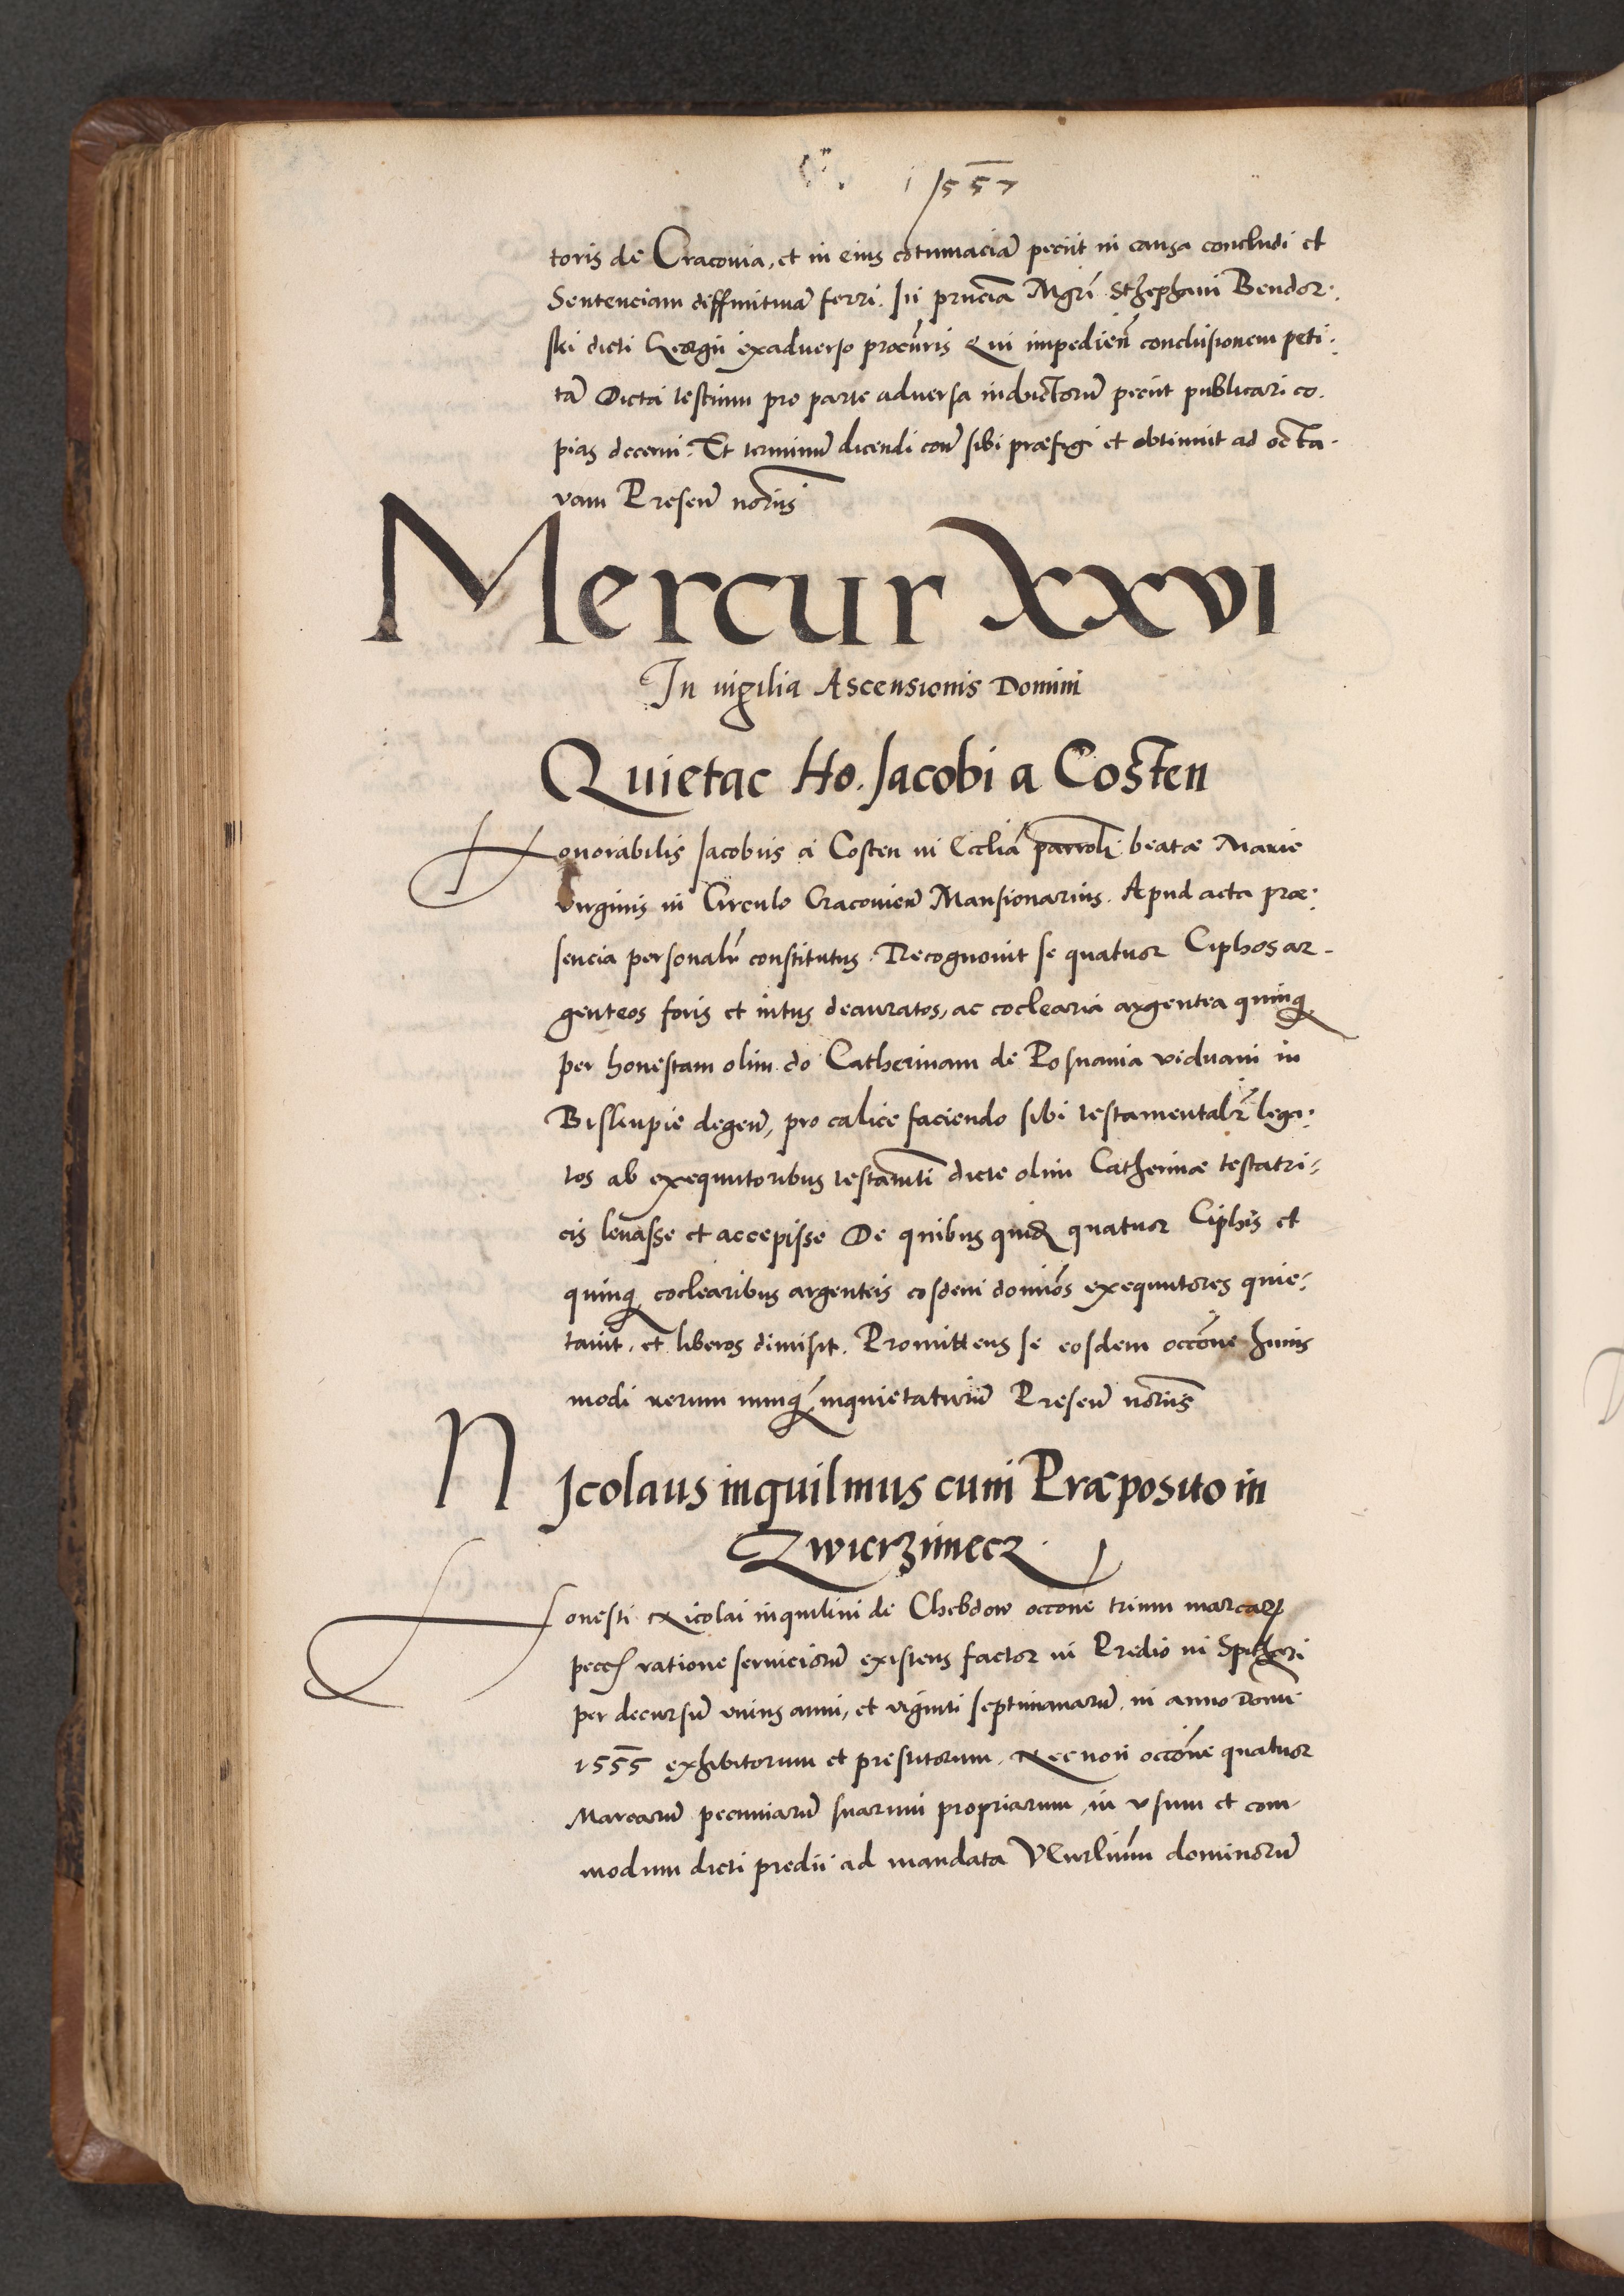 1557
toris de Cracouia, et in eius cōtumaciā peciit in causa concludi et
Sentenciam diffinitiuā ferri. In pr̄nciā Mgr̄i Sthephani Bendor:
ski dicti Georgii exaduerso procūris Qui impedien̄ conclusionem peti:
tā Dicta testium pro parte aduersa inductorū peciit publicari co.
pias decerni. Et terminū dicendi con̄ sibi præfigi et obtinuit ad octa-
vam Presen̄ nōriis
Mercur XXVI
In uigilia Ascensionis Domini
Quietac Ho. Jacobi a Costen
Honorabilis Jacobus a Costen in Ecclīa parroli beatæ Marie
virginis in Circulo Cracouien̄ Mansionarius. Apud acta præ:
sencia personalr̄ constitutus. Recognouit se quatuor Ciphos ar-
genteos foris et intus deauratos, ac coclearia argentea quinq
per honestam olim do Catherinam de Posnania viduam in
Biskupie degen̄, pro calice faciendo sibi testamentalr̄ lega:
tos ab exequutoribus testam̄ti dicte olim Catherinæ testatri:
cis leuasse et accepisse De quibus quid quatuor Ciphis et
quinq coclearibus argenteis eosdem domiōs exequutores quie:
tauit, et liberos dimisit. Promittens se eosdem occōne huius
modi rerum nunq̄ inquietaturū Presen̄ nōriis
Nicolaus inquilinus cum Præposito in
Zwierzinecz
Honesti Nicolai inquilini de Chebdow occōne trium marcar
pecc ratione seruiciorū existens factor in Predio in Spitkori
per decursū vnius anni, et viginti septimanarū, in anno Domī
1555 exhibitorum et prestitorum. Nec non occōne quatuor
Marcarū pecuniarū suarum propriarum, in vsum et com-
modum dicti predii ad mandata dominorū